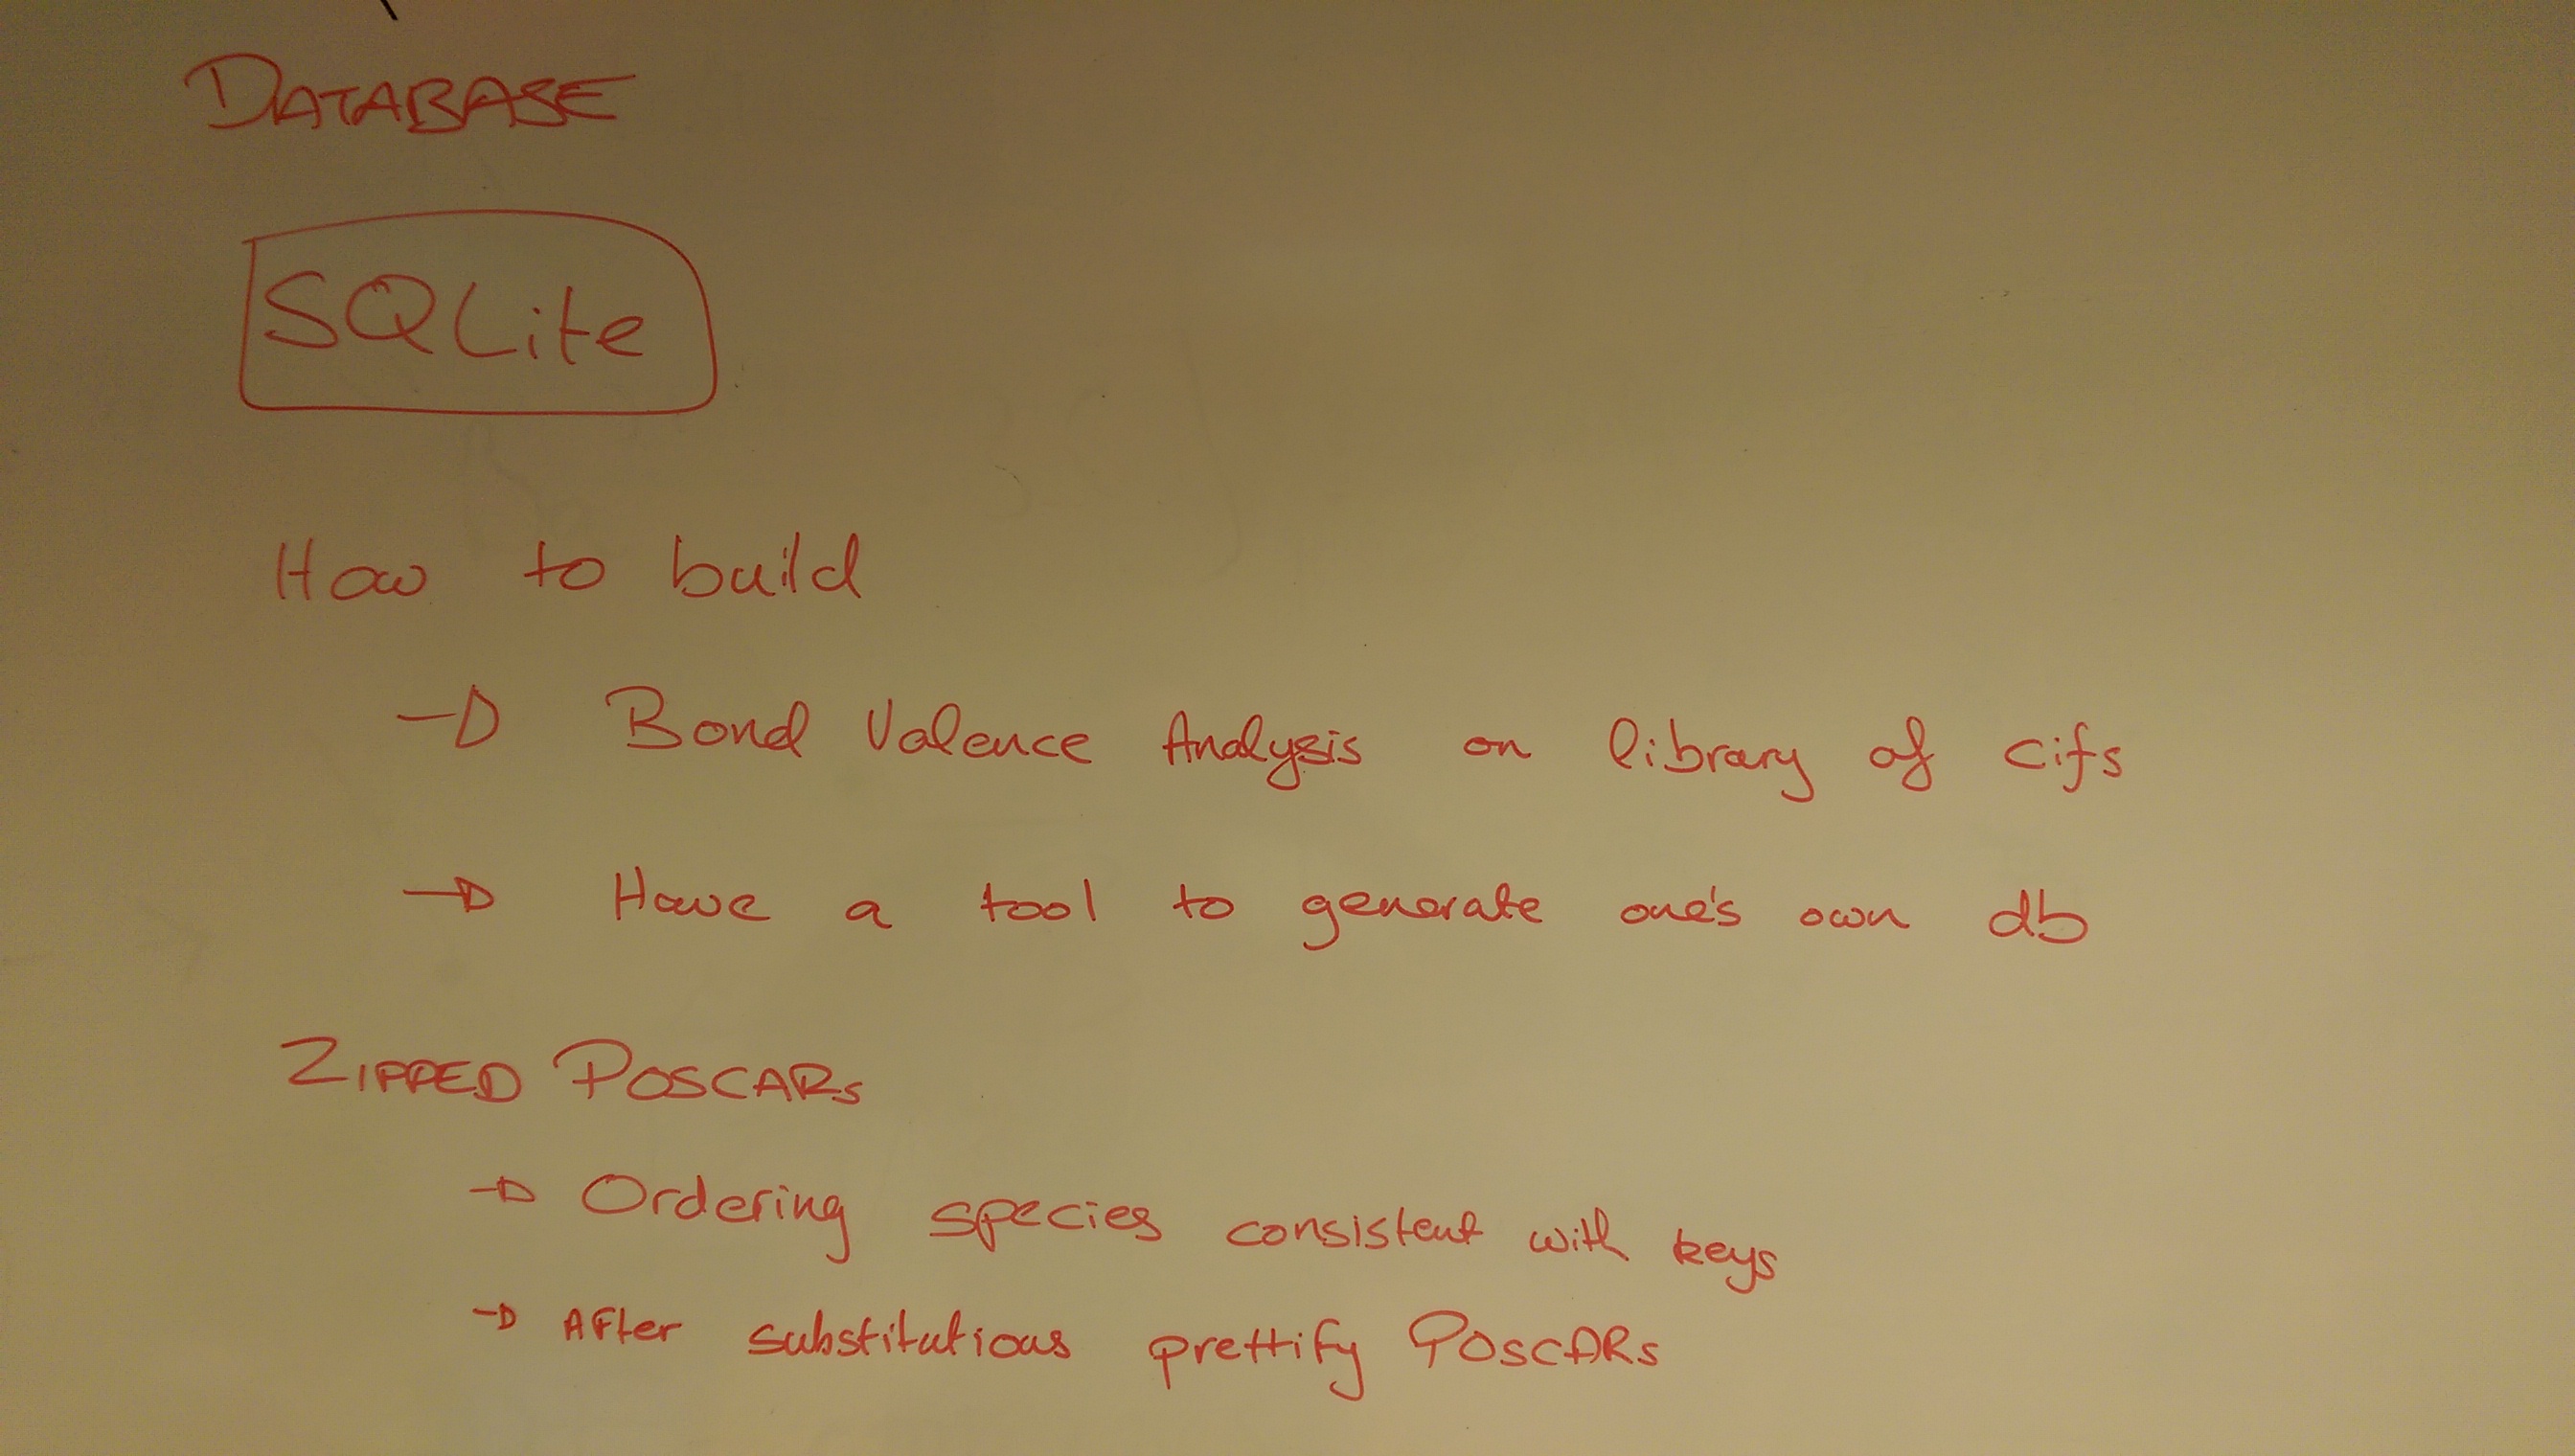 DATABASE
SQLite
How to build
→ Bond Valence Analysis on library of cifs
→ Have a tool to generate one's own db
ZIPPED POSCARs
→ Ordering species consistent with keys
→ After substitutions prettify POSCARs